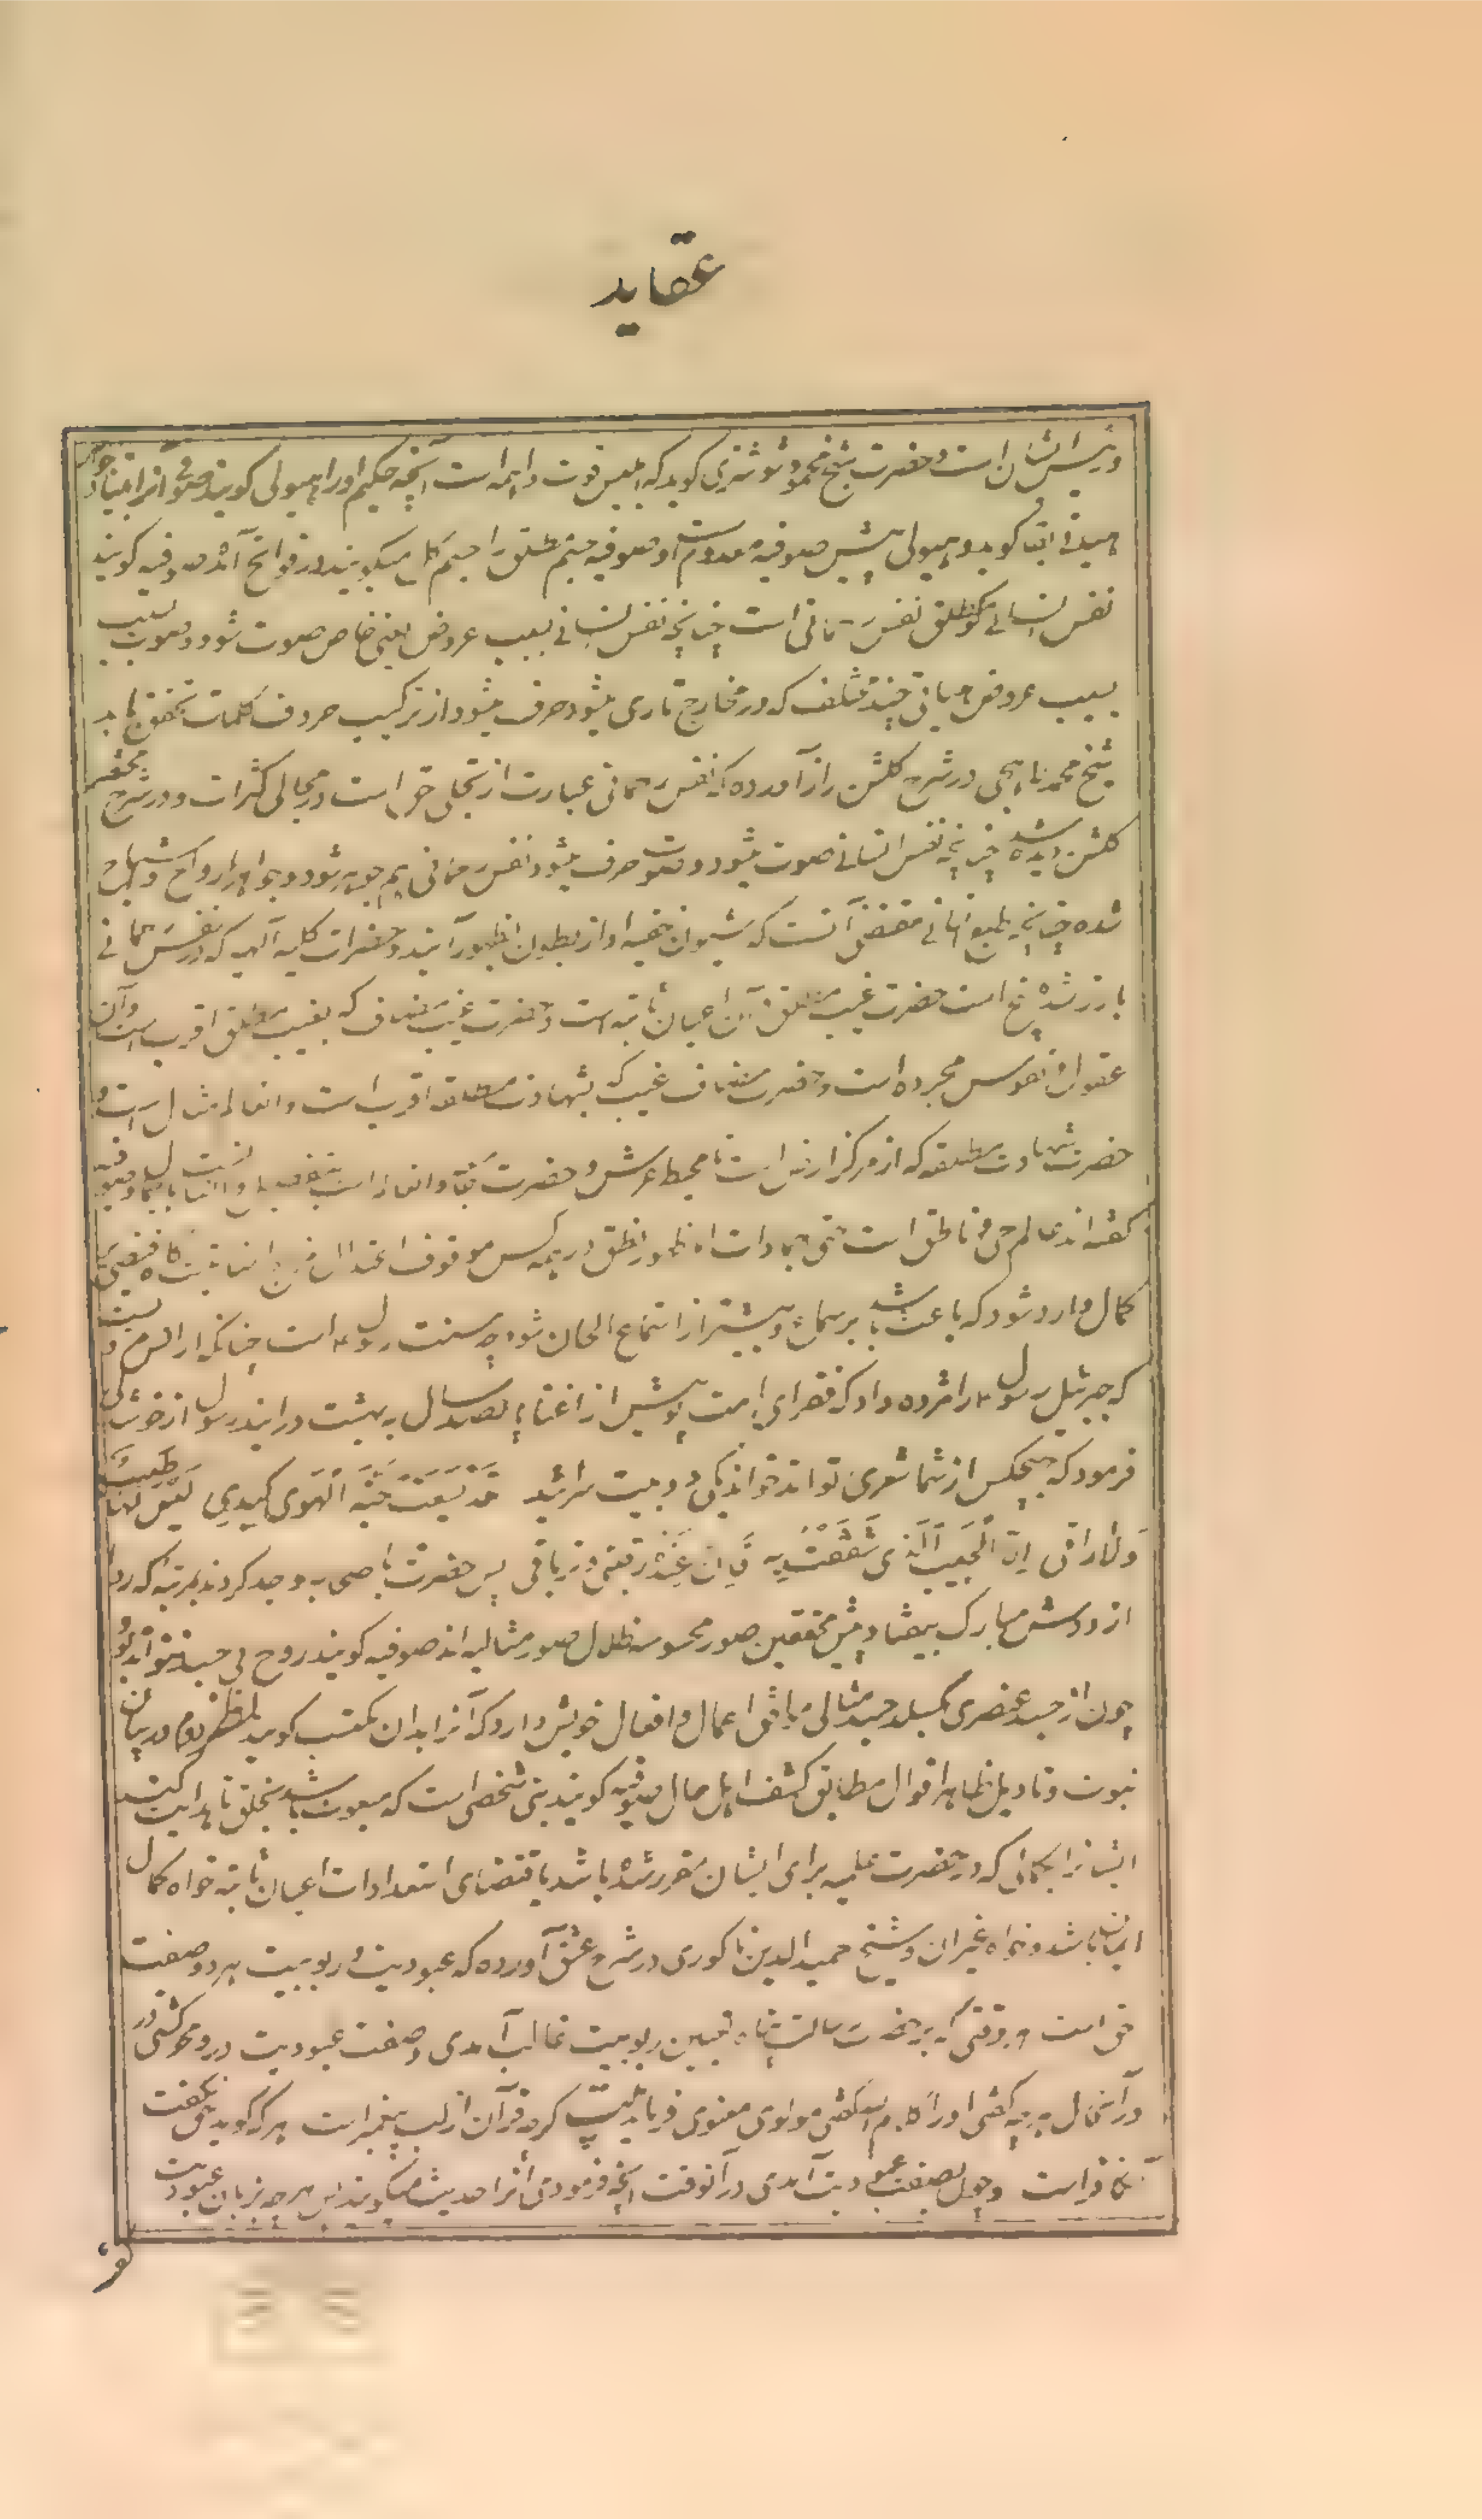 عقاید
و بینش ایشان است و حضرت شیخ محمود شوشتری کوید که ابلیس قوت واهمه است آنچه حکیم اورا هیولی کویند صوفی آنرا عنقا خواند
میدانی عنقا کوید و هیولی پیش صوفیه معدوم است و صوفیه جسم مطلق را جسم کل میکویند در فواتح آمد صوفیه کویند
نفس انسانی نفس رحمانی است چنانچه نفس انسانی بسبب عروض خاص صوت شود و صوت بسبب
بسبب عروض هیأتی چند مختلف که در مخارج طاری میشود حرف میشود از ترکیب حروف کلمات تحقق یابد
شیخ محمد لاهیجی در شرح کلشن راز آمرده که نفس رحمانی عبارت از تجلی حق است در مجالی کثرات و در شرح مختصر
کلشن دیده شد چنانچه نفس انسانی صوت میشود و صوت حرف میشود نفس رحمانی هم جوهر شود و جواهر ارواح و اشباح
شده چنانچه طبع انسانی مقتضی آنست که شیون خفیه او از بطون بظهور آیند و حضرات کلیه آلهیه که در نفس رحمانی
بارز شد پنج است حضرت غیب مطلق و آن اعیان ثابته است و حضرت غیب مضاف که بغیب مطلق اقرب است و آن
عقول و نفوس مجرده است و حضرت مضاف غیب که بشهادت مطلقه اقرب است و انعالم مثال است و
حضرت شهادت مطلقه که از مرکز ارض است تا محیط عرش و حضرت
کفته اند عالم حی و ناطق است حتی جمادات اما ظهور نطق در همه کس موقوف اعتدال مزاج انسانیت کاه
کمال وارد شود که باعث شد بر سماع و بیشتر از استماع الحان شود چه سنت رسول است چنانکه از انس مرویست
که جبرئیل رسول را مژده داد که فقرای امت تو پیش از اغنیا بپانصد سال به بهشت درایند رسول از خوشدلی
فرمود که هیچکس از شما شعری تواند خواند یکی دو بیت سرائید قد لسعت حیة الهوی کبدی لیس لها طبیب
ولا راقی ان الحبیب الذی شغفت به فان عنده رقیتی و تریاقی پس حضرت با صحابه وجد کردند بمرتبه که ردا
از دوش مبارک بیفتاد پیش محققین صور محسوسه ظلال صور مثالیه اند صوفیه کویند روح بی جسد نتواند بود
چون از جسد عنصری بکسلد جسد مثالی موافق اعمال و افعال خویش دارد که آنرا بدان مکتسب کویند نظر دوم در بیان
نبوت و تاویل ظاهر اقوال مطابق کشف اهل حال صوفیه کویند نبی شخصی است که مبعوث باشد بخلق تا هدایت کند
ایشانرا بکمالی که در حضرت علمیه برای ایشان مقرر شده باشد باقتضای استعدادات اعیان ثابته خواه کمال
ایمان باشد و خواه غیران و شیخ حمیدالدین ناکوری در شرح عشق آورده که عبودیت و ربوبیت هردو صفت
حق است هر وقتی که بر حضرت رسالت پناه ربوبیت غالب آمدی و صفت عبودیت درو محو کشتی
در آنحال هرچه کفتی اورا کلام الله کفتی مولوی معنوی فرماید بیت کرچه قرآن از لب پیغمبر است هرکه کوید حق نکفت
کافر است و چون بصفت عبودیت آمدی در آنوقت آنچه فرمودی آنرا حدیث میکویند پس هرچه بزبان عبودیت